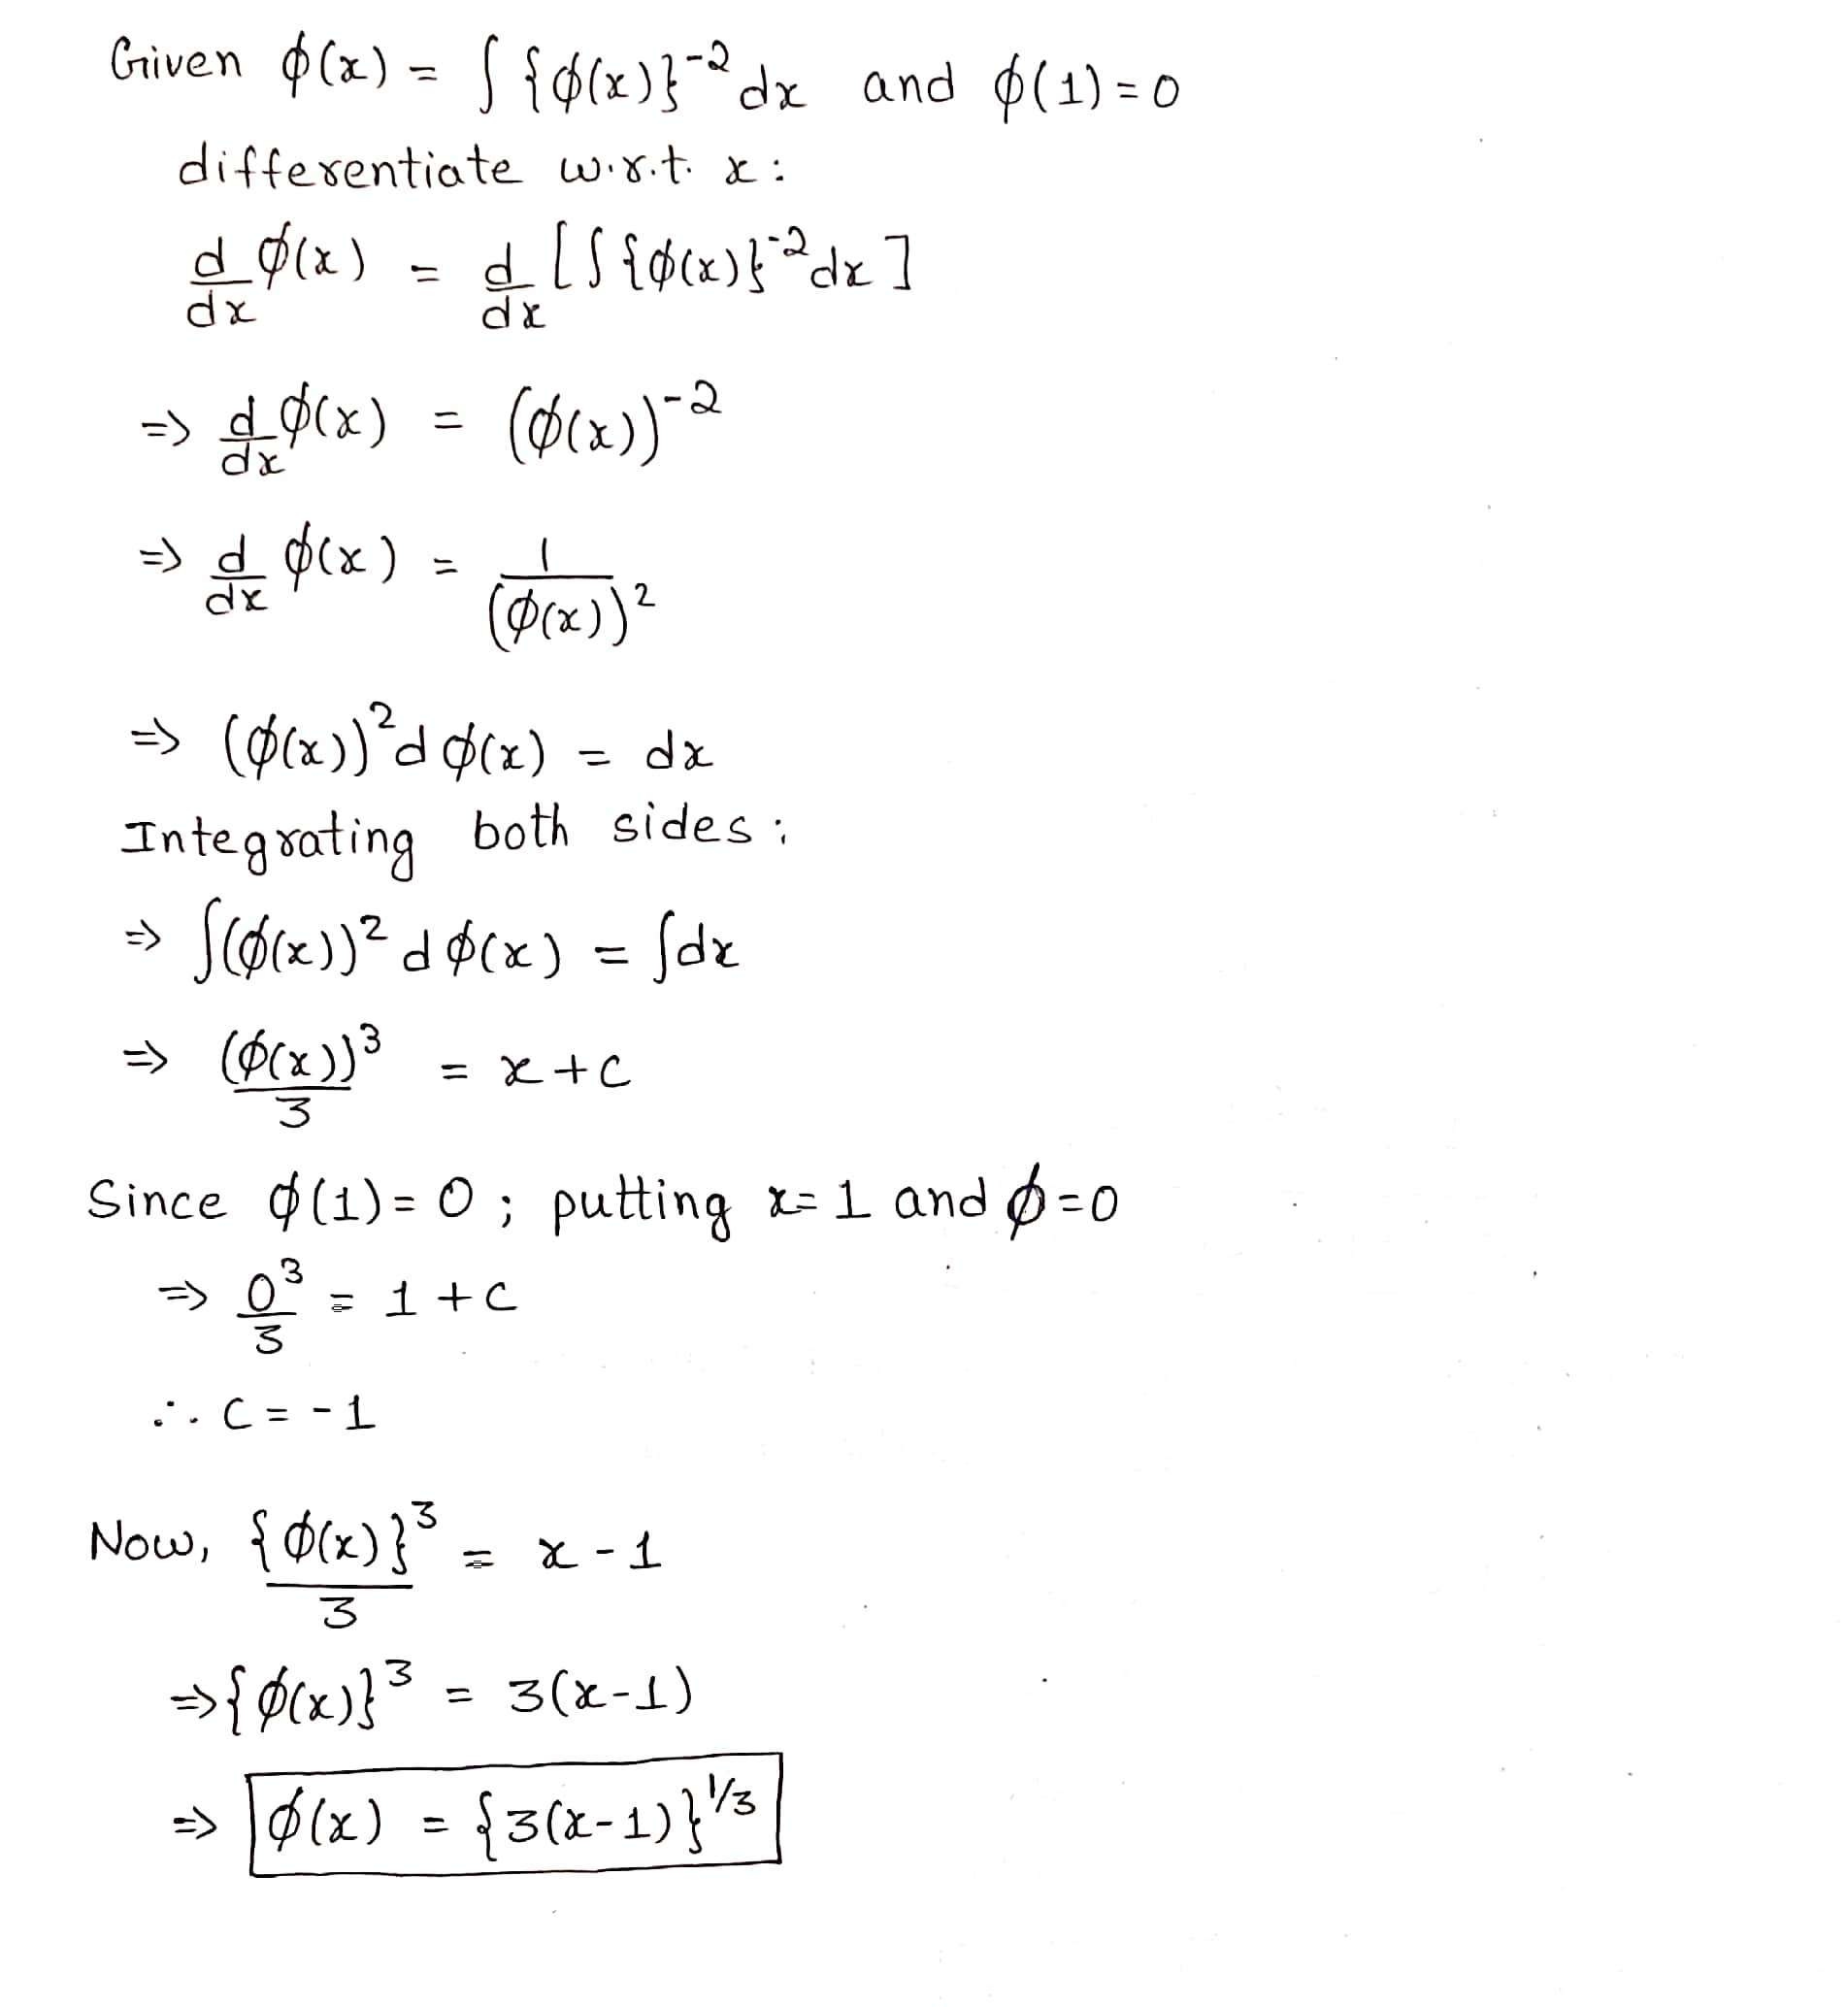 Given ϕ(x) = ∫ {ϕ(x)}⁻² dx and ϕ(1) = 0
differentiate w.r.t. x :
d/dx ϕ(x) = d/dx [∫ {ϕ(x)}⁻² dx ]
=> d/dx ϕ(x) = (ϕ(x))⁻²
=> d/dx ϕ(x) = 1/(ϕ(x))²
=> (ϕ(x))² d ϕ(x) = dx
Integrating both sides :
=> ∫(ϕ(x))² d ϕ(x) = ∫dx
=> (ϕ(x))³/3 = x + c
Since ϕ(1) = 0 ; putting x = 1 and ϕ = 0
=> 0³/3 = 1 + c
∴ c = -1
Now, {ϕ(x)}³/3 = x - 1
=> {ϕ(x)}³ = 3(x-1)
=> ϕ(x) = {3(x-1)}^1/3